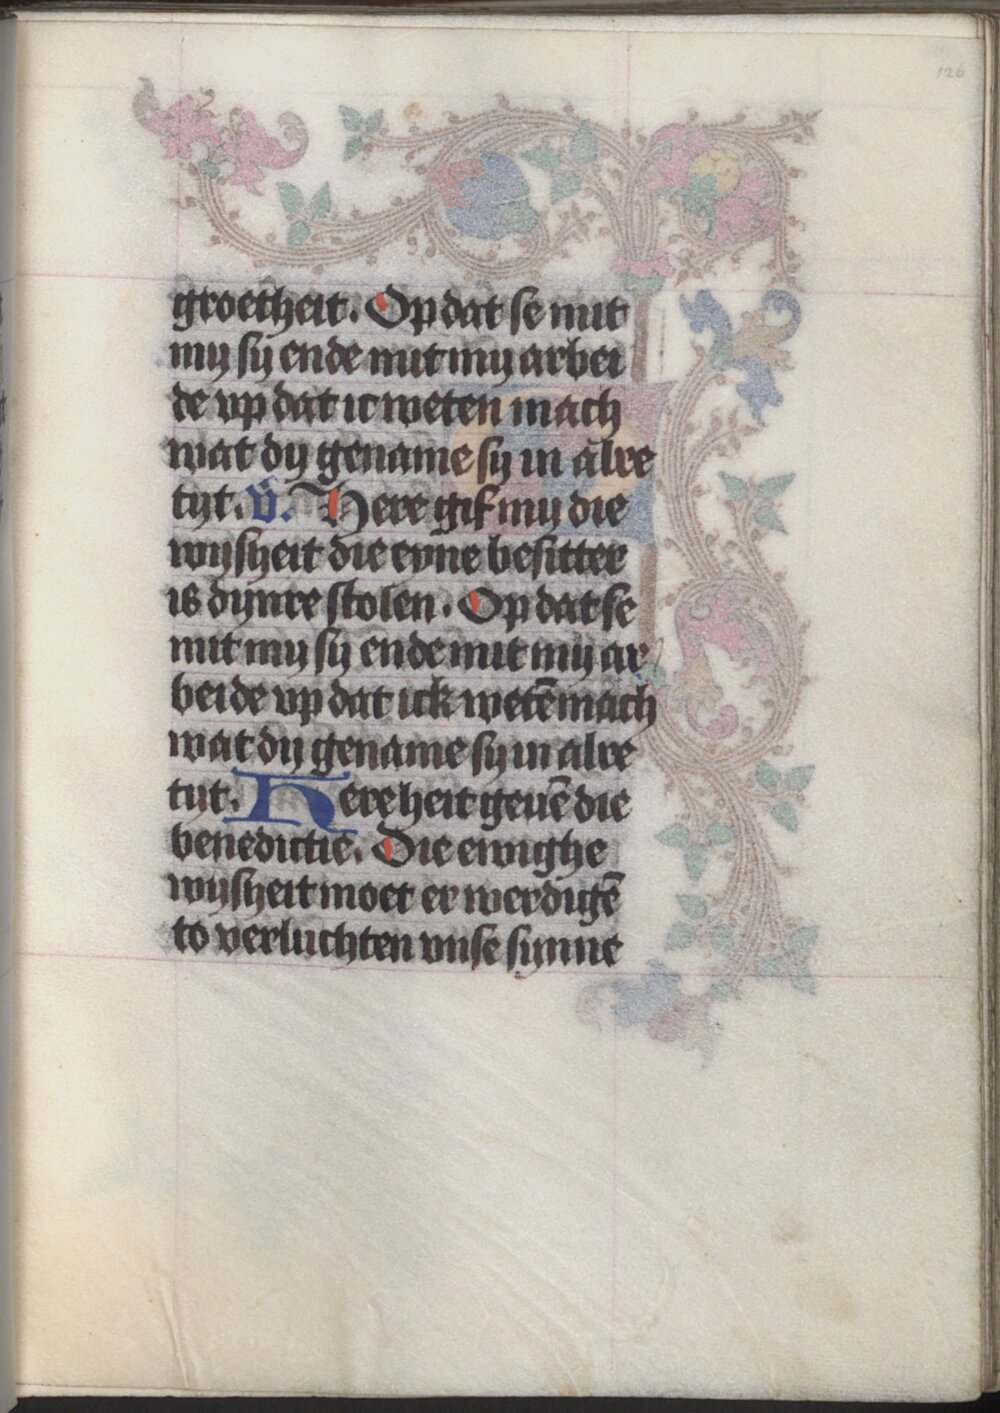 126
groetheit. Op dat se mit
my sy ende mit my arbei
de vp dat ic weten mach
wat dy gename sy in alre
tyt. V̄. Here gif my die
wysheit die eyne besitter
is dynre stolen. Op dat se
mit my sy ende mit my ar
beide vp dat ick wetē mach
wat dy gename sy in alre
tyt. Here heit geuē die
benedictie. Die ewighe
wysheit moet er werdigē
to verluchten vnse synne